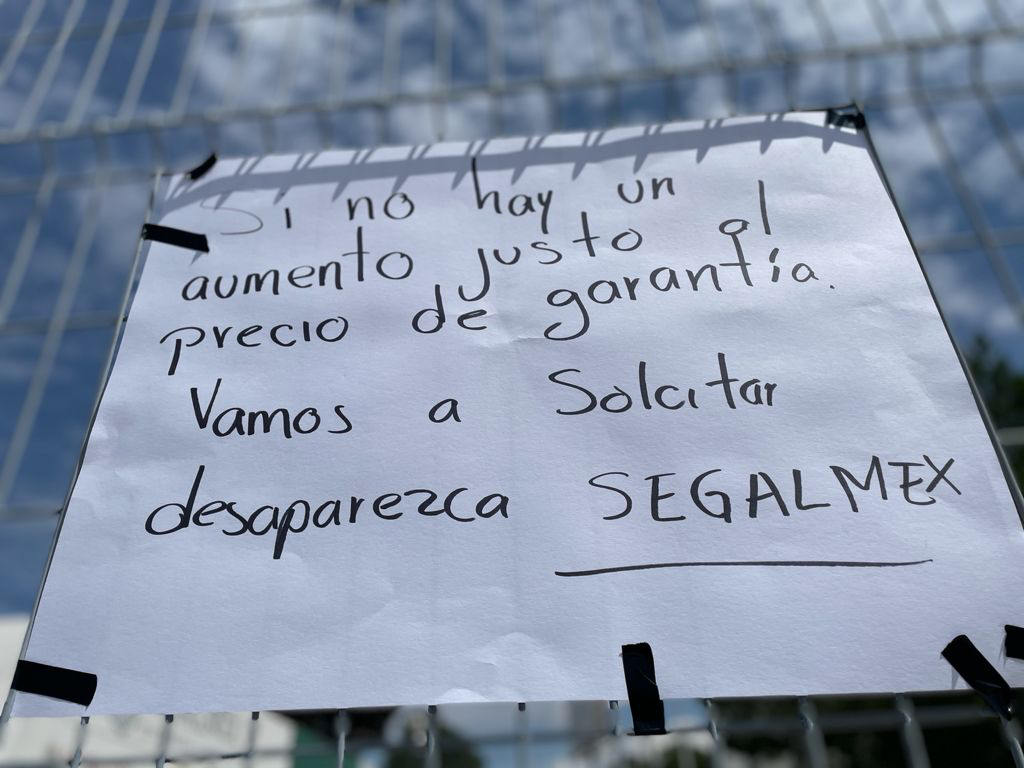 Si no hay un
aumento justo al
precio de garantía.
Vamos a Solcitar
desaparezca SEGALMEX